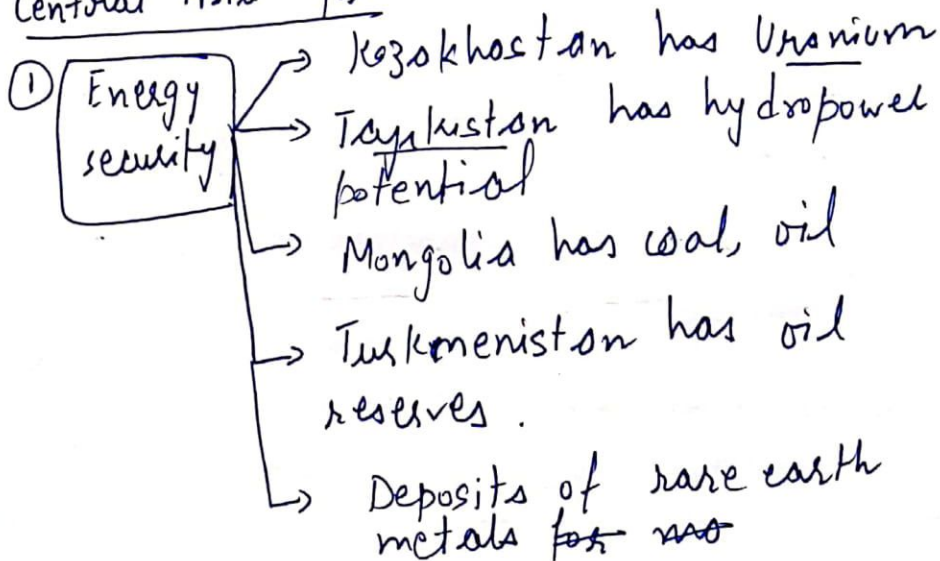 Central
① Energy
security
Kazakhastan has Uranium
has hydropower
potential
Mongolia has coal, oil
Turkmenistan has oil
reserves.
Deposits of rare earth
metals for